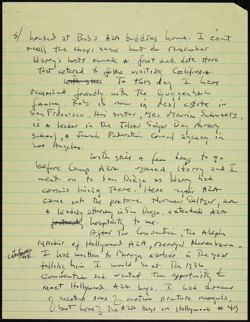 5/ housed at Bob's AZA buddies home. I can't
recall the chap's name but do remember
Harry's host owned a fruit and date store
that catered to folks visiting California.
To this day I have
remained friendly with the Guggenheim
family. Bob is now in real estate in
San Francisco. His sister, Mrs. Schwartz,
is a leader in the Julia Singer Day Nursery
School, a Jewish Federation Council agency in
Los Angeles.
With still a few days to go
before Camp AZA opened Harry and I
went on to San Diego as Harry had
cousins living there. Here again AZA
came into the picture. Norman Seltzer, now
a leading attorney in San Diego, extended AZA
hospitality to me.
After the Convention, the Aleph
of Hollywood AZA,
I had written to earlier in the year
telling him I would meet the 1932
Convention and wanted the opportunity to
meet Hollywood AZA boys. I had dreams
of meeting sons of motion picture moguls,
but none of the AZA boys in Hollywood #49